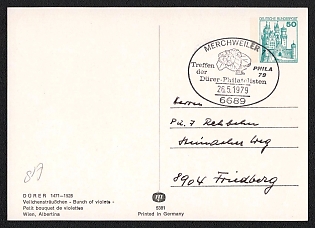 DEUTSCHE BUNDESPOST
50
MERCHWEILER 1
Treffen
der
Dürer-Philatelisten
PHILA
79
26.5.1979
6689
Herren
8904 Friedberg
DÜRER 1471-1528
Veilchensträußchen - Bunch of violets -
Petit bouquet de violettes
Wien, Albertina
5381
Printed in Germany